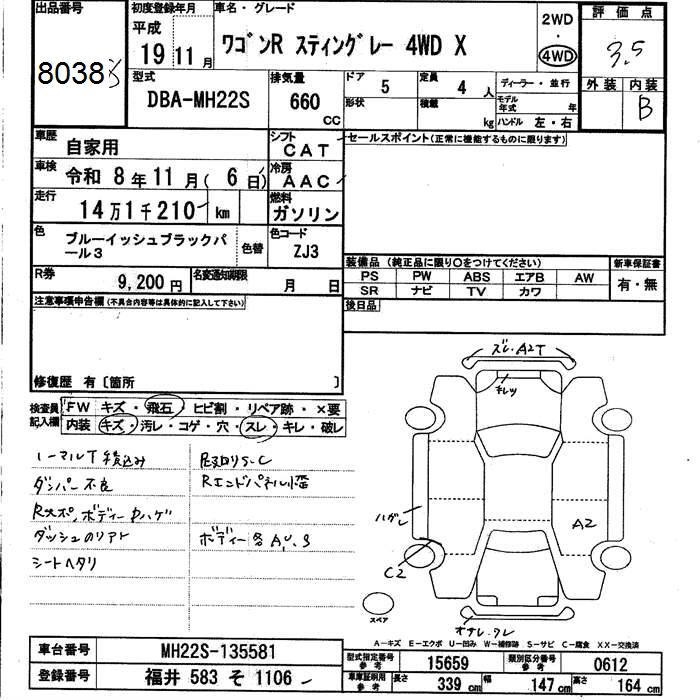 出品番号
8038
初度登録年月
平成
19 11 月
車名・グレード
ワゴンR スティングレー 4WD X
2WD
・
4WD
評価点
3.5
外装 内装
B
型式
DBA-MH22S
排気量
660
CC
ドア
5
形状
定員
4 人
積載
kg
ディーラー・並行
モデル年式 年
ハンドル 左・右
車歴
自家用
シフト
CAT
車検
令和 8 年 11 月( 6 日)
冷房
AAC
走行
14 万 1 千 210 km
燃料
ガソリン
色
ブルーイッシュブラックパール3
色替
色コード
ZJ3
R券
9,200 円
名変通知期限
月 日
セールスポイント(正常に機能するものに限ります)
装備品(純正品に限り○をつけてください)
PS PW ABS エアB AW
SR ナビ TV カワ
新車保証書
有・無
後日品
注意事項申告欄(不具合内容等は具体的に記入して下さい)
修復歴 有〔箇所 〕
検査員記入欄
FW キズ・飛石・ヒビ割・リペア跡・×要
内装 キズ・汚レ・コゲ・穴・スレ・キレ・破レ
ノーマルT積込み
ダンパー不良
ダッシュのリアト
シートヘタリ
下廻りS.C
Rエンドパネル小歪
ボディー各A,U,S
ズレ.A2T
キレツ
ハガレ
A2
C2
スペア
A-キズ E-エクボ U-凹み W-補修跡 S-サビ C-腐食 XX-交換済
車台番号
MH22S-135581
登録番号
福井 583 そ 1106
型式指定番号
参考
15659
類別区分番号
参考
0612
車庫証明用
参考
長さ
339 cm
幅
147 cm
高さ
164 cm